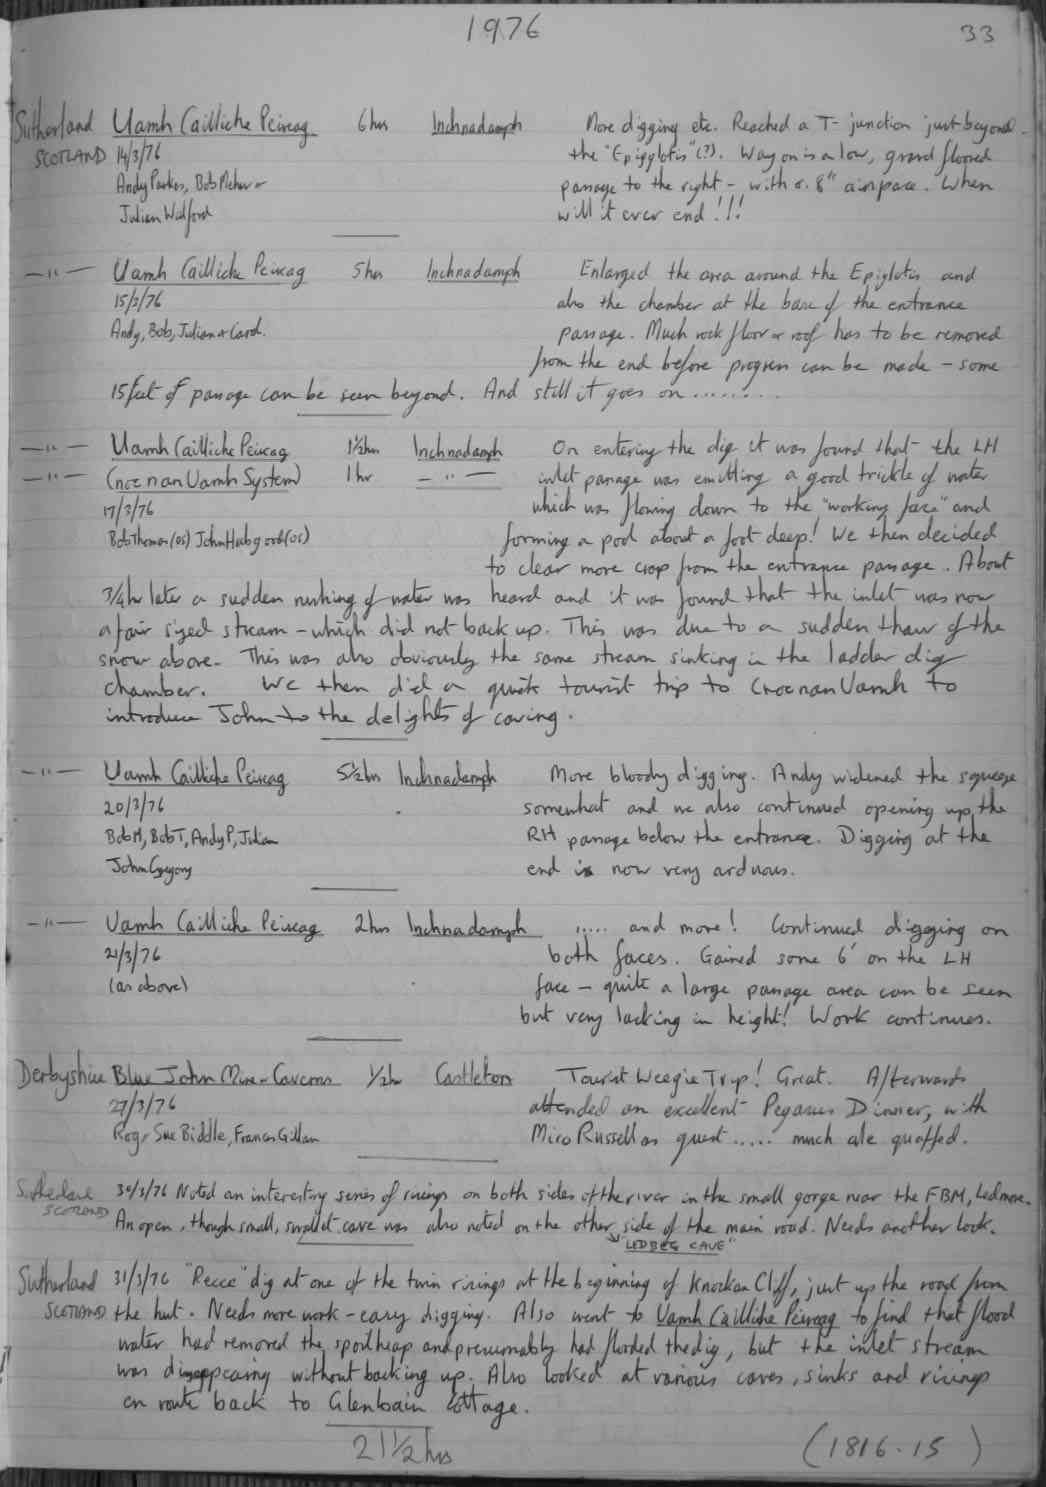 1976
33
Sutherland Uamh Cailliche Peireag 6hrs Inchnadamph More digging etc. Reached a T-junction just beyond
SCOTLAND 14/3/76 the "Epigglotis"(?). Way on is a low, gravel floored
Andy Parkes, Bob Mehew + passage to the right - with c. 8" airspace. When
Julian Walford will it ever end!!!
—"— Uamh Cailliche Peireag 5hrs Inchnadamph Enlarged the area around the Epiglotis and
15/3/76 also the chamber at the base of the entrance
Andy, Bob, Julian + Carol. passage. Much rock floor or roof has to be removed
from the end before progress can be made - some
15 feet of passage can be seen beyond. And still it goes on ........
—"— Uamh Cailliche Peireag 1½hrs Inchnadamph On entering the dig it was found that the LH
—"— Cnoc nan Uamh System 1hr —"— inlet passage was emitting a good trickle of water
17/3/76 which was flowing down to the "working face" and
Bob Thomas(OS) John Hubgood(OS) forming a pool about a foot deep! We then decided
to clear more crap from the entrance passage. About
3/4hr later a sudden rushing of water was heard and it was found that the inlet was now
a fair sized stream - which did not back up. This was due to a sudden thaw of the
snow above. This was also obviously the same stream sinking in the ladder dig
chamber. We then did a quick tourist trip to Cnoc nan Uamh to
introduce John to the delights of caving.
—"— Uamh Cailliche Peireag 5½hrs Inchnadamph More bloody digging. Andy widened the squeeze
20/3/76 somewhat and we also continued opening up the
Bob M, Bob T, Andy P, Julian RH passage below the entrance. Digging at the
John Gregory end is now very arduous.
—"— Uamh Cailliche Peireag 2hrs Inchnadamph ..... and more! Continued digging on
21/3/76 both faces. Gained some 6' on the LH
(as above) face - quite a large passage area can be seen
but very lacking in height! Work continues.
Derbyshire Blue John Mine-Caverns ½hr Castleton Tourist Weegie Trip! Great. Afterwards
27/3/76 attended an excellent Pegasus Dinner, with
Rog + Sue Biddle, Frances Gillan Mico Russell as guest ..... much ale quaffed.
Sutherland 30/3/76 Noted an interesting series of risings on both sides of the river in the small gorge near the FBM, Ledmore.
SCOTLAND An open, though small, smallest cave was also noted on the other side of the main road. Needs another look.
"LEDBEG CAVE"
Sutherland 31/3/76 "Recce" dig at one of the twin risings at the beginning of Knockan Cliff, just up the road from
SCOTLAND the hut. Needs more work - easy digging. Also went to Uamh Cailliche Peireag to find that flood
water had removed the spoil heap and presumably had flooded the dig, but the inlet stream
was disappearing without backing up. Also looked at various caves, sinks and risings
en route back to Glenbain Cottage.
21½hrs
(1816.15)